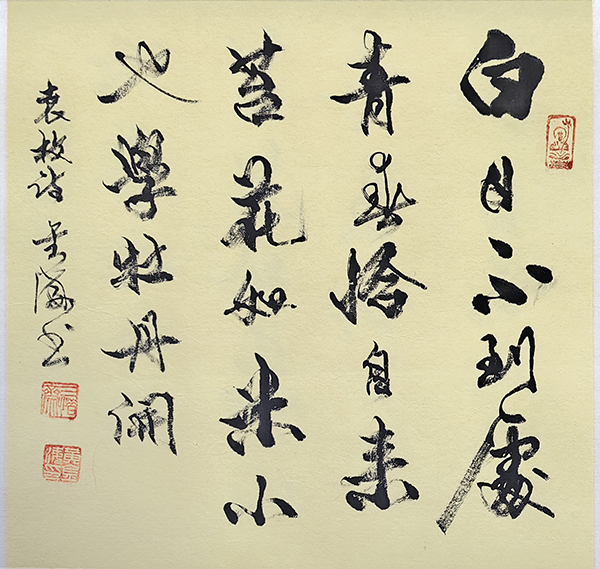 白日不到處
青春恰自来
苔花如米小
也學牡丹開
袁枚诗 书